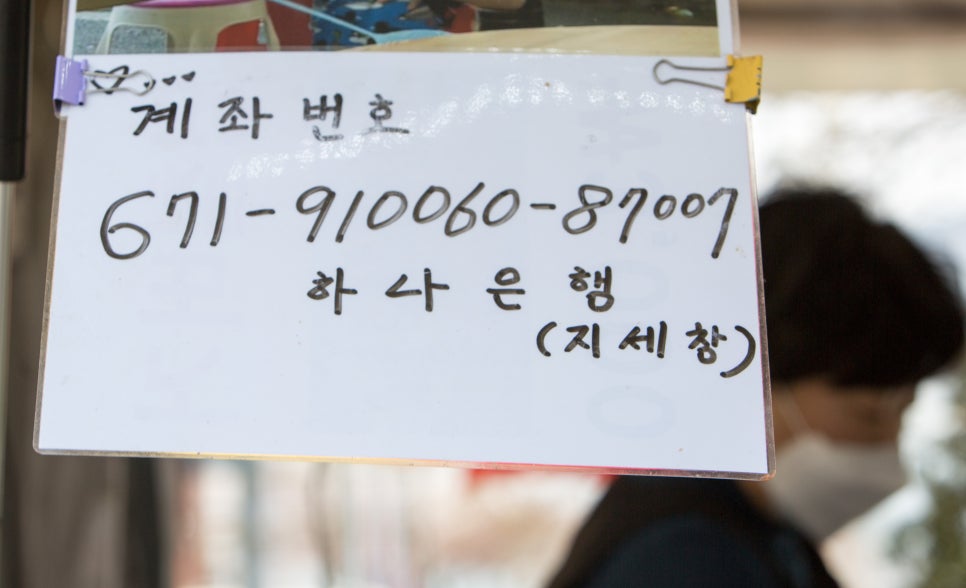 계좌번호
671-910060-87007
하나은행
(지세창)